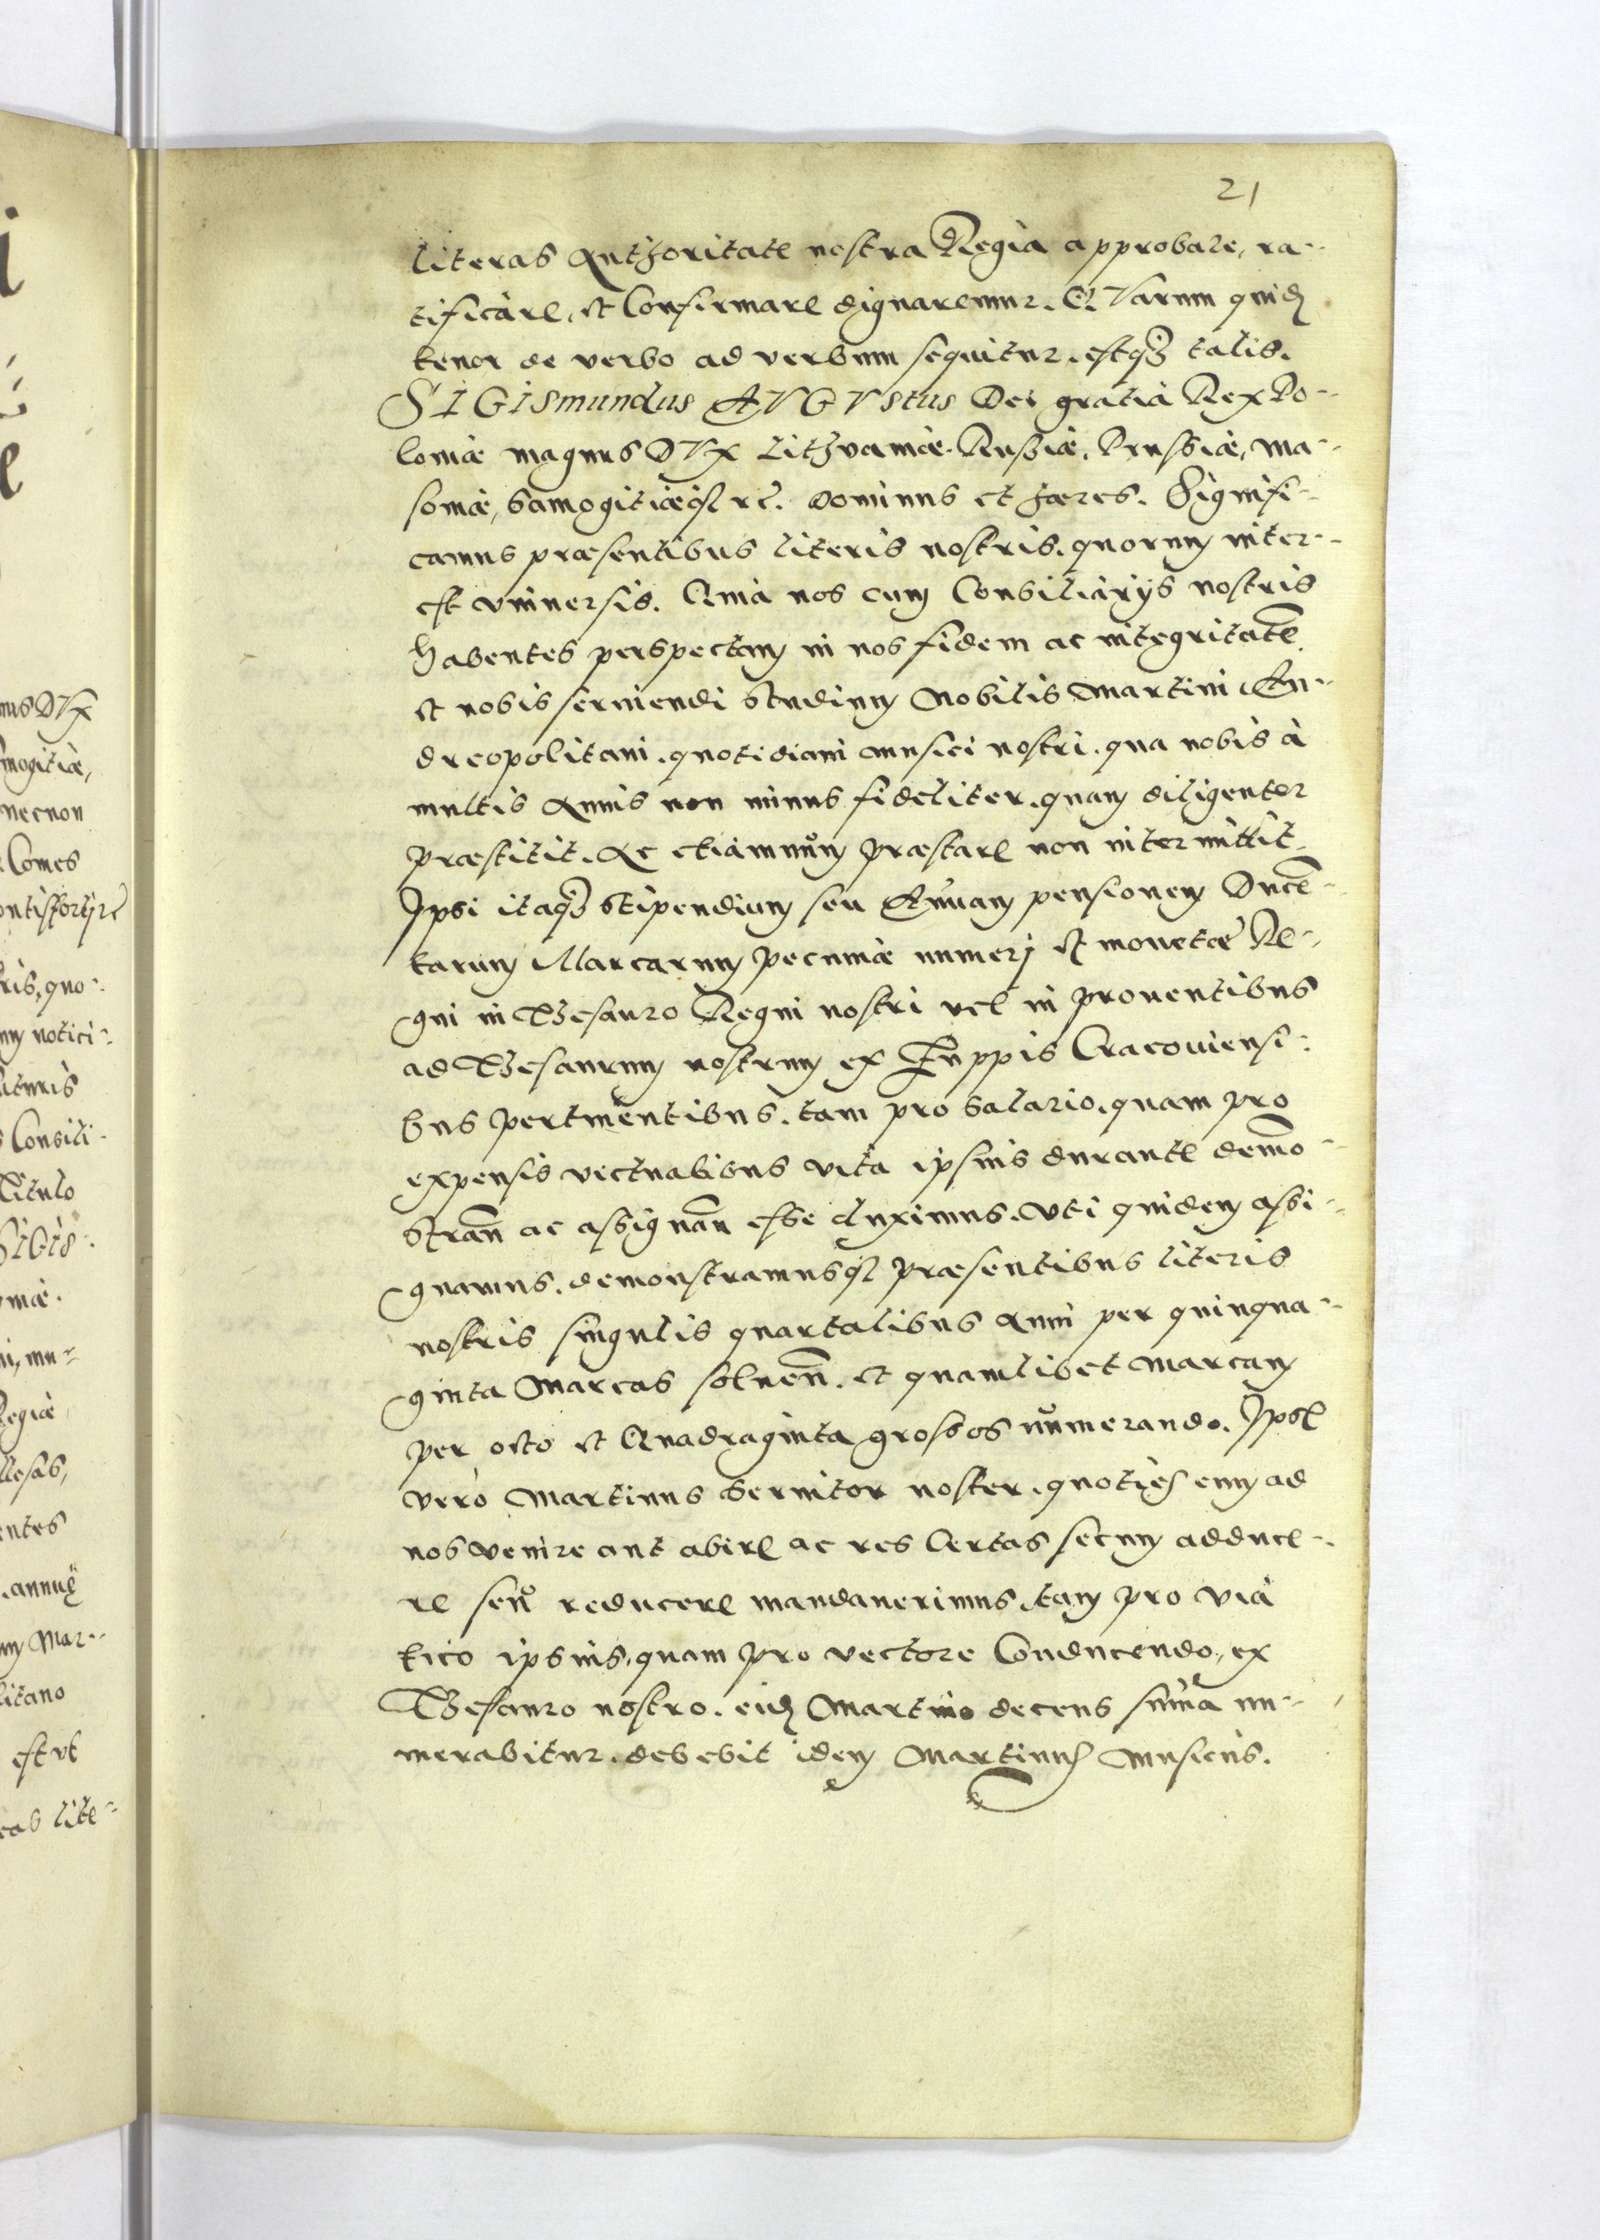 21
literas Authoritate nostra Regia approbare, ra-
tificare, et Confirmare dignaremur. QVarum quid
tenor de verbo ad verbum sequitur, estq3 talis.
SIGISmundus AVGVstus Dei gratia Rex Po-
loniæ magnus DVx Lithvaniæ. Russiæ, Prussiæ, Ma-
soviæ, Samogitiæq3 etc. Dominus et hæres. Signifi-
camus præsentibus literis nostris, quorum inter-
est vniuersis. Quia nos cum Consiliarijs nostris
habentes perspectam in nos fidem ac integritatē
et nobis seruiendi studium Nobilis Martini An-
dreopolitani, quotidiani musici nostri, qua nobis à
multis Annis non minus fideliter, quam diligenter
præstitit. Ac etiamnum præstare non intermittit.
Ipsi itaq3 stipendium seu Annuam pensionem Ducē-
tarum Marcarum pecuniæ numeri et monetæ Re-
gni in Thesauro Regni nostri vel in prouentibus
ad Thesaurum nostrum ex Zuppis Cracouiensi-
bus pertinentibus, tam pro salario, quam pro
expensis vectualibus vita ipsius durante demō-
stran̄ ac assignan̄ esse duximus. Vti quidem assi-
gnamus, demonstramusq3 præsentibus literis
nostris singulis quartalibus Anni per quinqua-
ginta Marcas soluen̄. et quamlibet Marcam
per octo et Quadraginta grossos numerando. Ipse
vero Martinus Seruitor noster, quoties eum ad
nos venire aut abire ac res Certas secum adduce-
re seu reducere mandauerimus, tam pro via
tico ipsius, quam pro vectore Conducendo, ex
Thesauro nostro. eid Martino decens sum̄a nu-
merabitur. debebit idem Martinus Musicus.
nus DVx
mogitiæ,
necnon
Comes
ris, quo-
notici-
Consili-
Titulo
SIGIS-
mæ.
Regiæ
entes
annuę
Mar-
litano
est vt
lite-